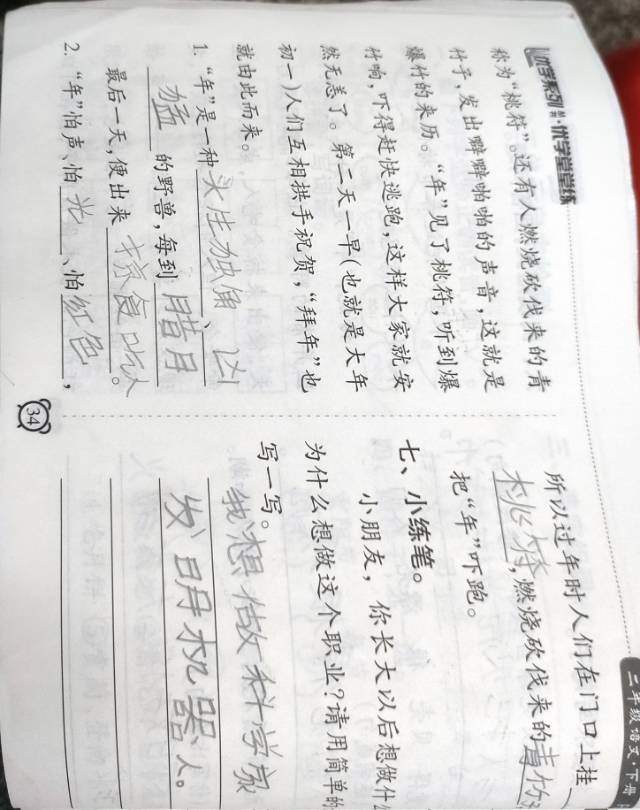 优学系列 优学堂堂练
称为“桃符”。还有人燃烧砍伐来的青
竹子，发出噼噼啪啪的声音，这就是
爆竹的来历。“年”见了桃符，听到爆
竹响，吓得赶快逃跑，这样大家就安
然无恙了。第二天一早（也就是大年
初一）人们互相拱手祝贺，“拜年”也
就由此而来。
1. “年”是一种头生独角、凶
猛的野兽，每到腊月
最后一天，便出来寻食吃人。
2. “年”怕声、怕光、怕红色，
34
二年级语文·下册
所以过年时人们在门口上挂
桃符，燃烧砍伐来的青竹
把“年”吓跑。
七、小练笔。
小朋友，你长大以后想做什
为什么想做这个职业？请用简单的
写一写。
我想做科学家
发明机器人。